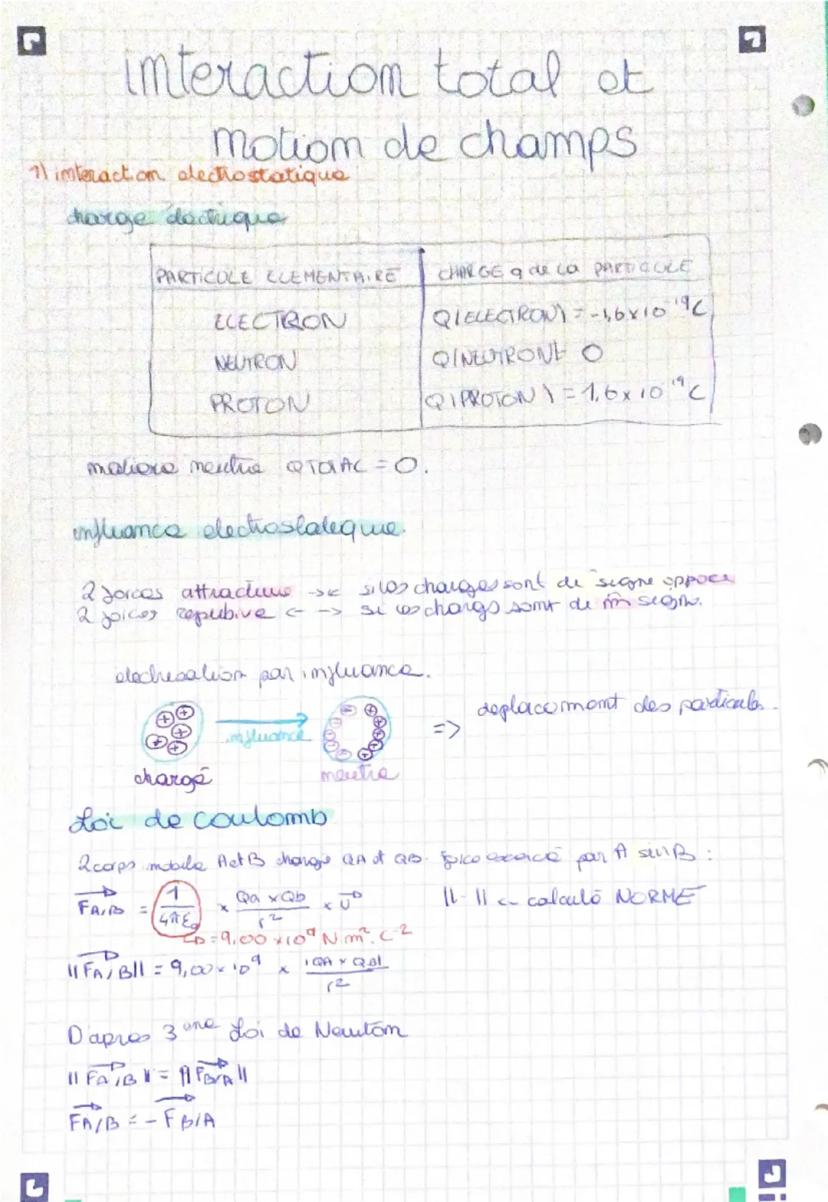 interaction total et
notion de champs
1) interaction electrostatique
charge électrique
PARTICULE ELEMENTAIRE CHARGE q de la PARTICULE
ELECTRON Q(ELECTRON) = -1,6 x 10⁻¹⁹ C
NEUTRON Q(NEUTRON) = 0
PROTON Q(PROTON) = 1,6 x 10⁻¹⁹ C
matiere neutre Q TOTAL = 0.
influance electrostatique.
2 forces attractive -> <- si les charges sont de signe opposé
2 forces repulsive <- -> si les charges sont de m̂ signe.
electrisation par influance.
influance => deplacement des particules.
chargé neutre
Loi de coulomb
2 corps mobile A et B chargé QA et QB. force exercé par A sur B :
F⃗A/B = 1/4πε₀ x Qa x Qb / r² x u⃗ ||-|| <- calculé NORME
↳ = 9,00 x 10⁹ N.m².C⁻²
||F⃗A/B|| = 9,00 x 10⁹ x |QA x QB| / r²
D'apres 3 eme Loi de Newton
||F⃗A/B|| = ||F⃗B/A||
F⃗A/B = - F⃗B/A